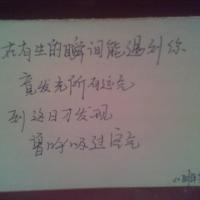 在有生的瞬间能遇到你
竟花光所有运气
到这日才发现
曾呼吸过空气